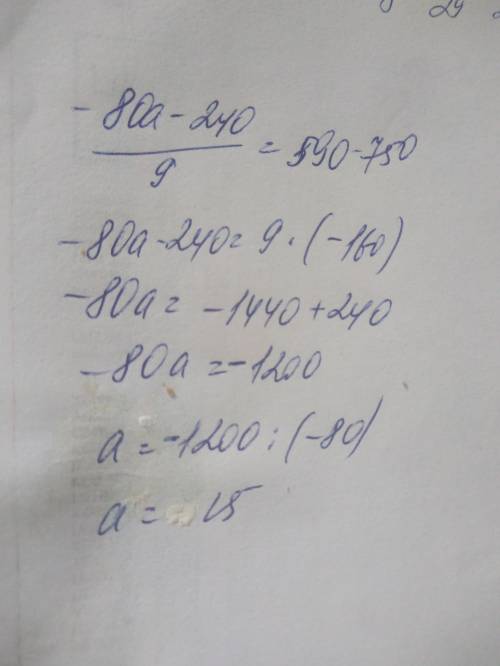 29
- 80a - 240
9
= 590 - 750
- 80a - 240 = 9 · (-160)
- 80a = -1440 + 240
- 80a = -1200
a = -1200 : (-80)
a = 15